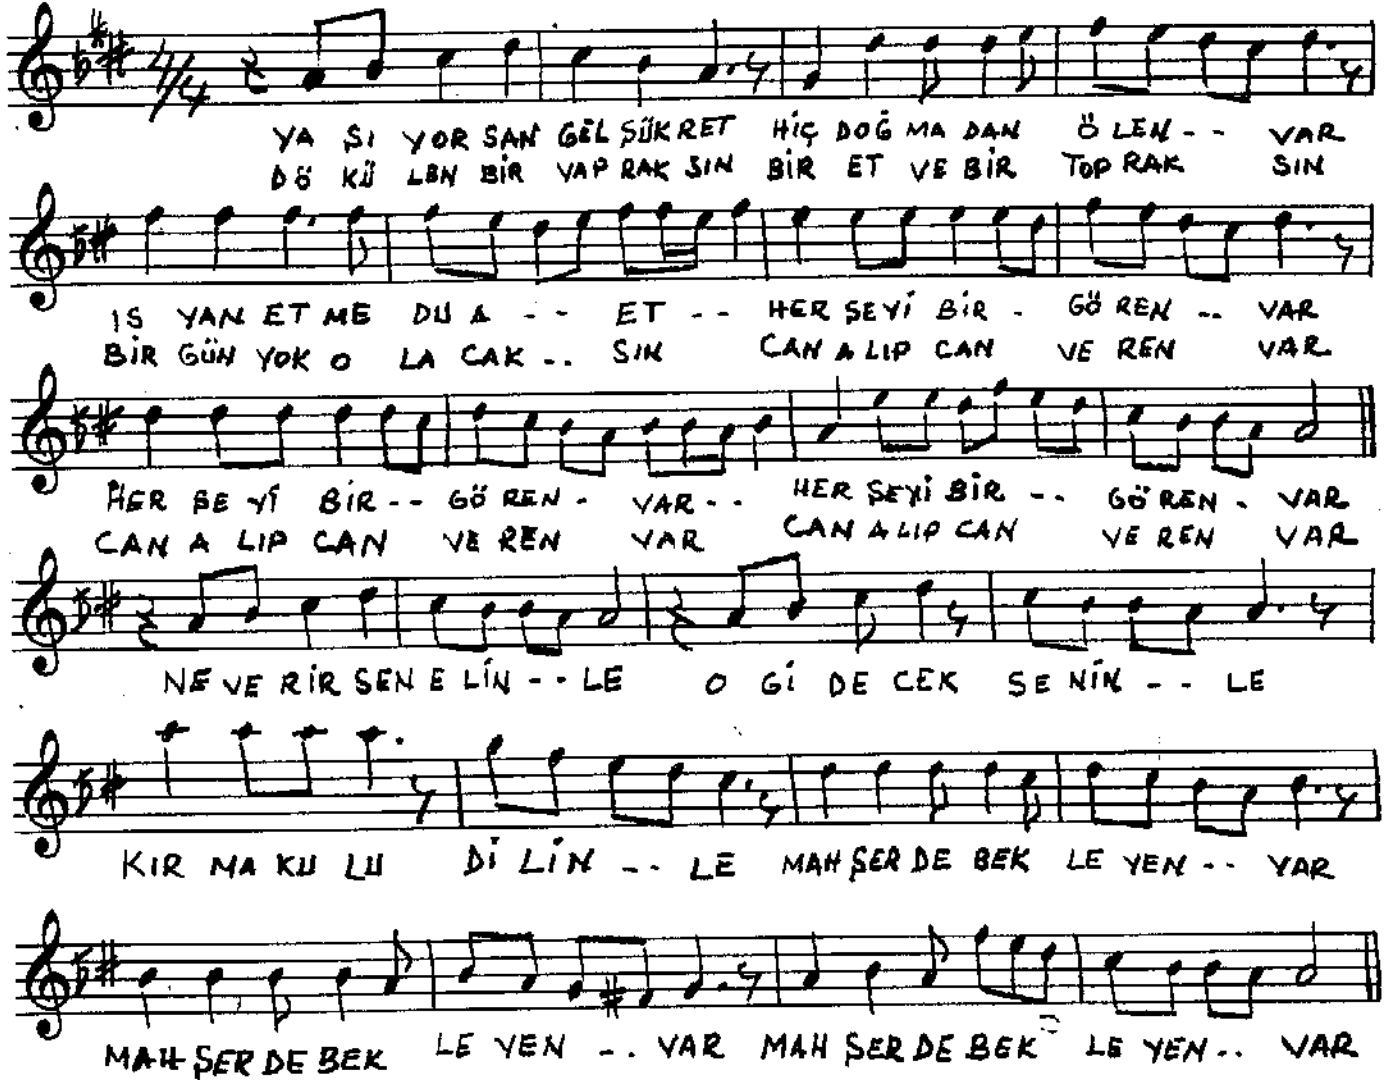 4/4
YA ŞI YOR SAN GEL ŞÜKRET HİÇ DOĞ MA DAN Ö LEN - - VAR
DÖ KÜ LEN BİR YAP RAK SIN BİR ET VE BİR TOP RAK SIN
IS YAN ET ME DU A - - ET - - HER ŞEYİ BİR - GÖ REN - - VAR
BİR GÜN YOK O LA CAK - - SIN CAN A LIP CAN VE REN VAR
HER ŞE Yİ BİR - - GÖ REN - VAR - - HER ŞEYİ BİR - - GÖ REN - VAR
CAN A LIP CAN VE REN VAR CAN A LIP CAN VE REN VAR
NE VE RİR SEN E LİN - - LE O Gİ DE CEK SE NİN - - LE
KIR MA KU LU Dİ LİN - - LE MAH ŞER DE BEK LE YEN - - VAR
MAH ŞER DE BEK LE YEN - - VAR MAH ŞER DE BEK LE YEN - - VAR